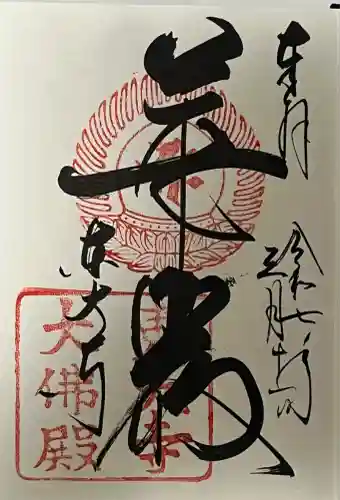 奉拝
令和七年
三月十七日
華厳
東大寺
東大寺
大佛殿